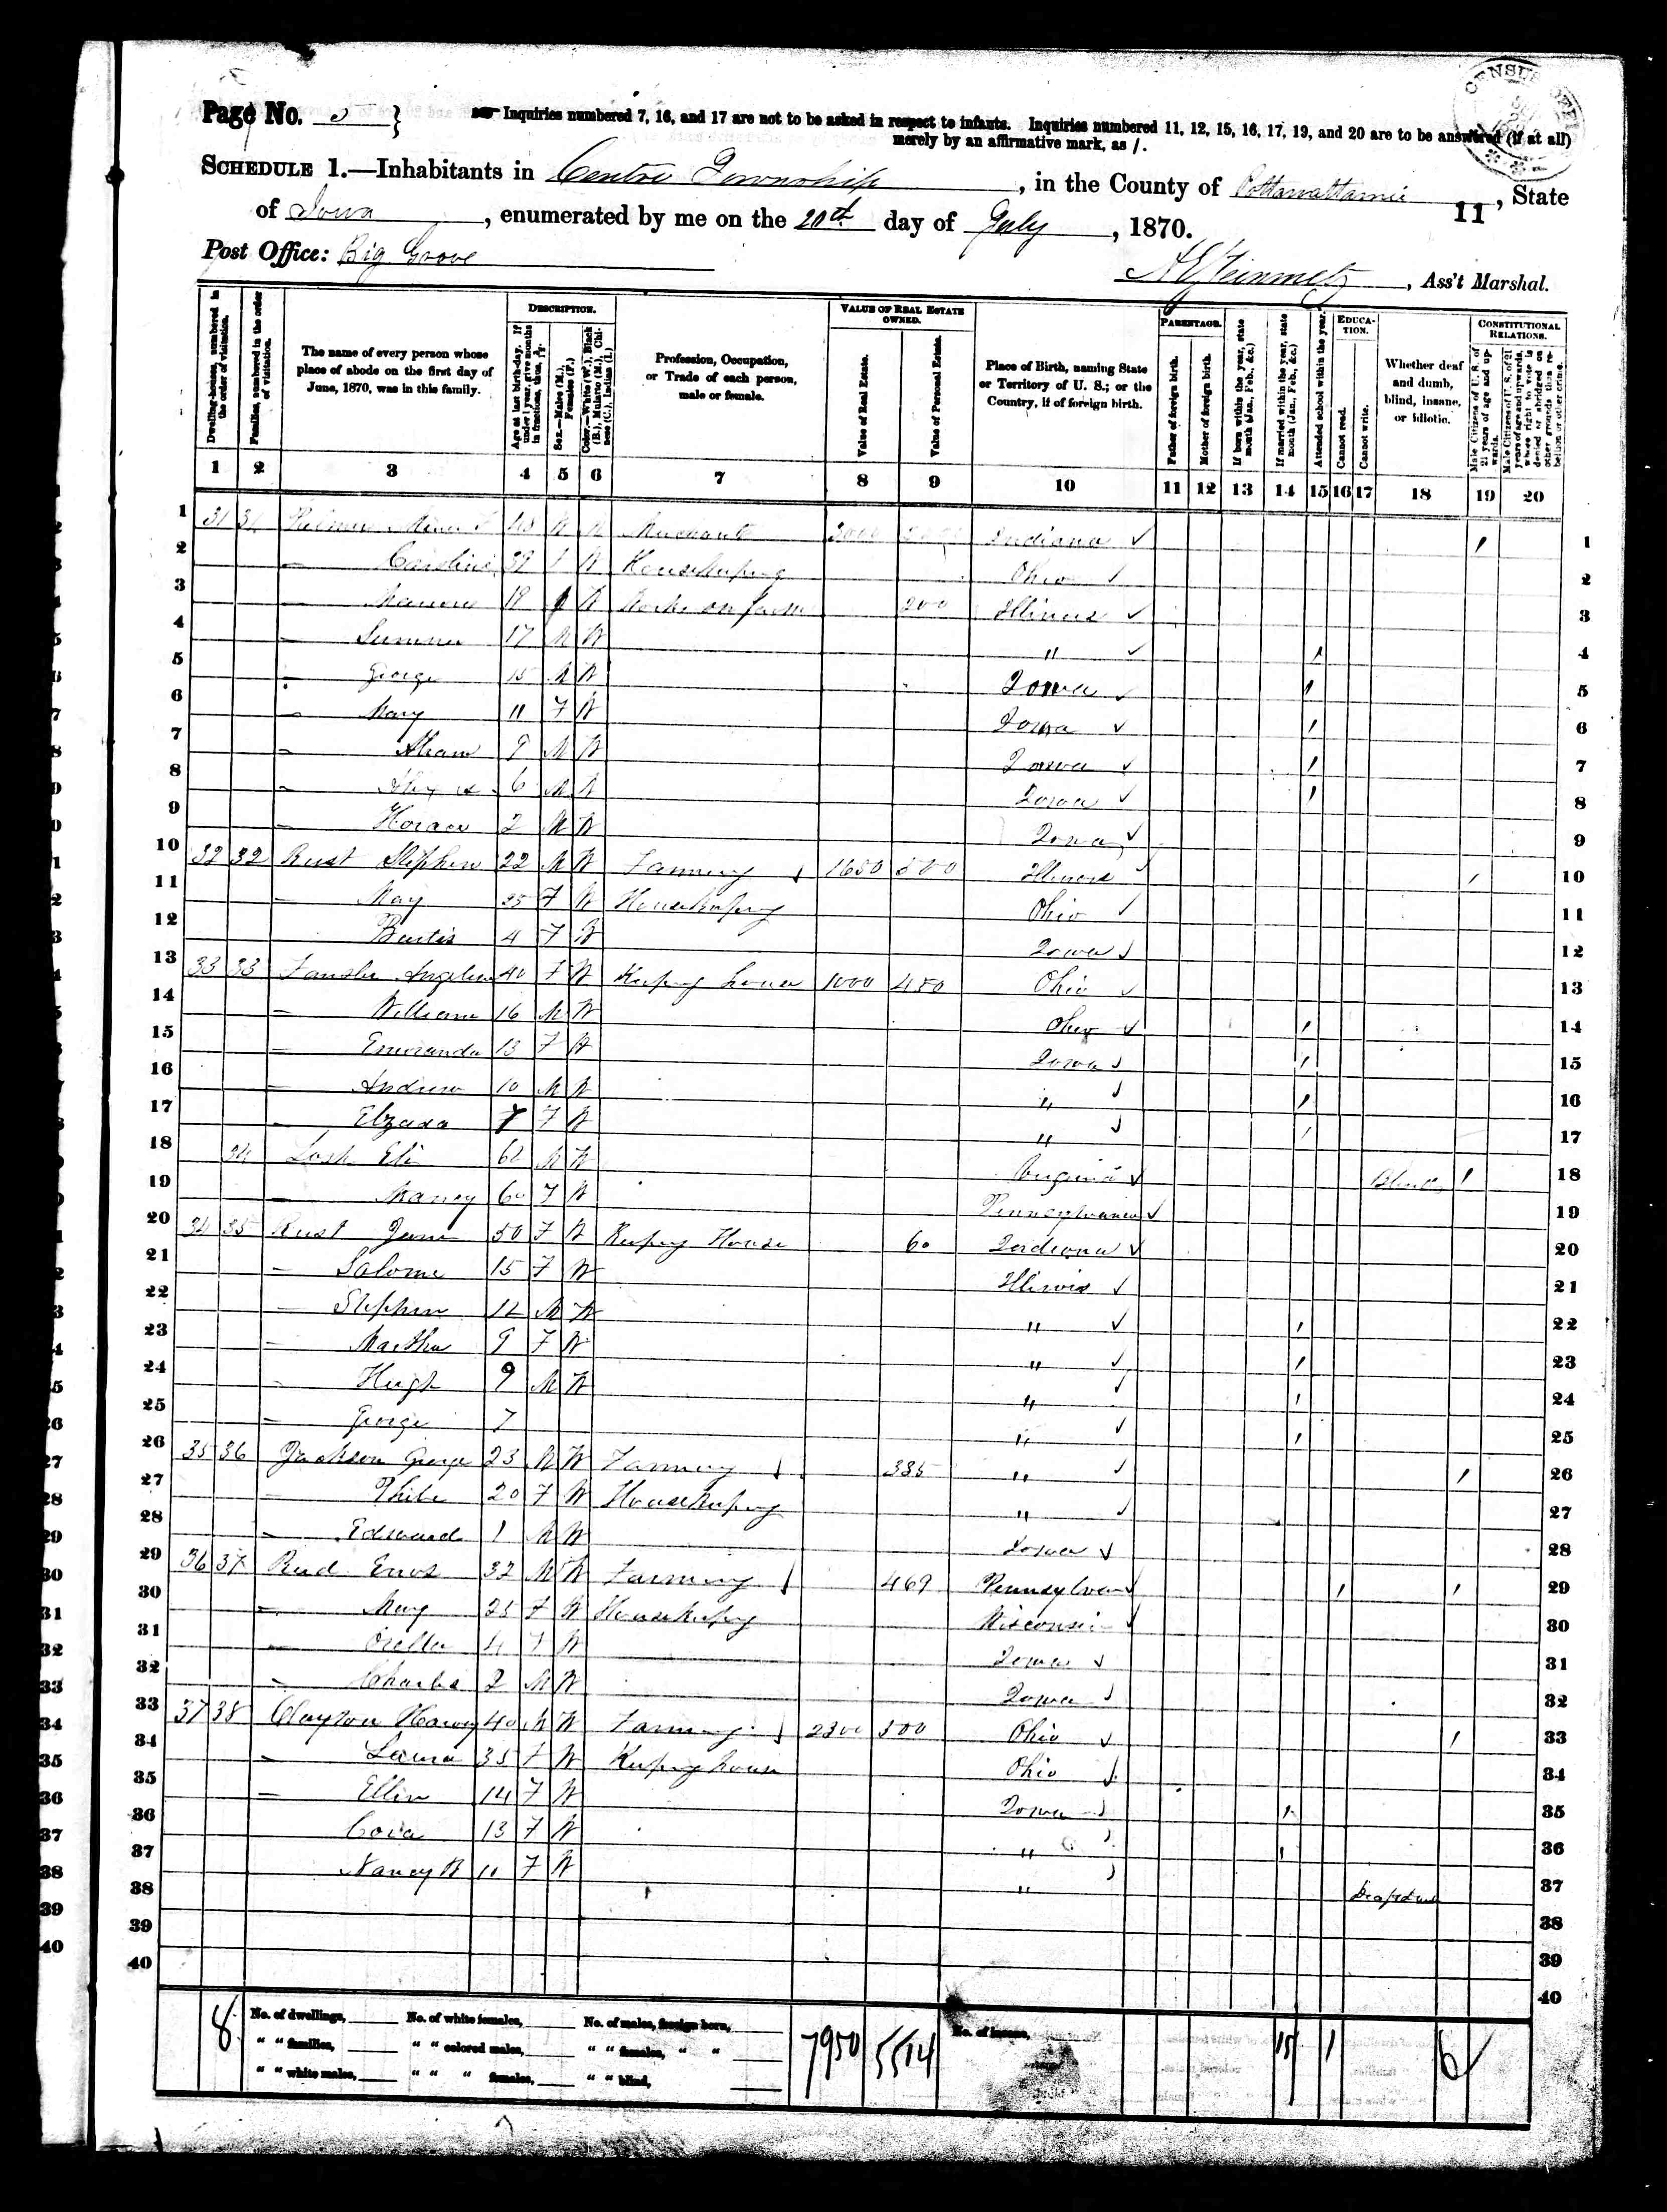 Page No. 5 }
Inquiries numbered 7, 16, and 17 are not to be asked in respect to infants. Inquiries numbered 11, 12, 15, 16, 17, 19, and 20 are to be answered (if at all)
merely by an affirmative mark, as /.
SCHEDULE 1.—Inhabitants in Centre Township, in the County of Pottawattamie, State
11
of Iowa, enumerated by me on the 20th day of July, 1870.
Post Office: Big Grove
Steinmetz, Ass't Marshal.
Dwelling-houses, numbered in the order of visitation.
Families, numbered in the order of visitation.
The name of every person whose place of abode on the first day of June, 1870, was in this family.
DESCRIPTION.
Age at last birth-day. If under 1 year, give months in fractions, thus,
Sex.—Males (M.), Females (F.)
Color.—White (W.), Black (B.), Mulatto (M.), Chinese (C.), Indian (I.)
Profession, Occupation, or Trade of each person, male or female.
VALUE OF REAL ESTATE OWNED.
Value of Real Estate.
Value of Personal Estate.
Place of Birth, naming State or Territory of U. S.; or the Country, if of foreign birth.
PARENTAGE.
Father of foreign birth.
Mother of foreign birth.
If born within the year, state month (Jan., Feb., &c.)
If married within the year, state month (Jan., Feb., &c.)
Attended school within the year.
EDUCATION.
Cannot read.
Cannot write.
Whether deaf and dumb, blind, insane, or idiotic.
CONSTITUTIONAL RELATIONS.
Male Citizens of U. S. of 21 years of age and upwards.
Male Citizens of U. S. of 21 years of age and upwards, whose right to vote is denied or abridged on other grounds than rebellion or other crime.
1 2 3 4 5 6 7 8 9 10 11 12 13 14 15 16 17 18 19 20
1 31 31 Merchant 3000 Indiana 1
2 Caroline 39 W Housekeeping Ohio 2
3 18 W Works on farm 200 Illinois 3
4 Sumner 17 M W " 4
5 George 15 M W Iowa 5
6 Mary 11 F W Iowa 6
7 9 M W Iowa 7
8 6 M W Iowa 8
9 Horace 2 M W Iowa 9
10 32 32 Rust Stephen 22 M W Farming 1650 500 Illinois 10
11 May 25 F W Housekeeping Ohio 11
12 Bertis 4 F W Iowa 12
13 33 33 Angeline 40 F W Keeping house 1000 450 Ohio 13
14 William 16 M W Ohio 14
15 Emoranda 13 F W Iowa 15
16 Andrew 10 M W " 16
17 Elzada 7 F W " 17
18 34 Lash Eli M W Virginia Blind 18
19 Nancy 60 F W Pennsylvania 19
20 34 35 Rust Jane 50 F W Keeping House 60 Indiana 20
21 Salome 15 F W Illinois 21
22 Stephen 12 M W " 22
23 Martha 9 F W " 23
24 Hugh 9 M W " 24
25 George 7 " 25
26 35 36 Jackson George 23 M W Farming 335 " 26
27 Phebe 20 F W Housekeeping " 27
28 Edward 1 M W Iowa 28
29 36 37 Reed Enos 32 M W Farming 469 Pennsylvan 29
30 Mary 25 F W Housekeeping Wisconsin 30
31 Orella 4 F W Iowa 31
32 Charles 2 M W Iowa 32
33 37 38 Clayton Harvey 40 M W Farming 2300 500 Ohio 33
34 Laura 35 F W Keeping house Ohio 34
35 Ellen 14 F W Iowa 35
36 Cora 13 F W " 36
37 Nancy B 11 F W " Deaf & dum 37
38 38
39 39
40 40
8
No. of dwellings, No. of white females, No. of males, foreign born, 7950 5514 No. of insane, 15 1 6
" " families, " " colored males, " " females, " "
" " white males, " " " females, " " blind,